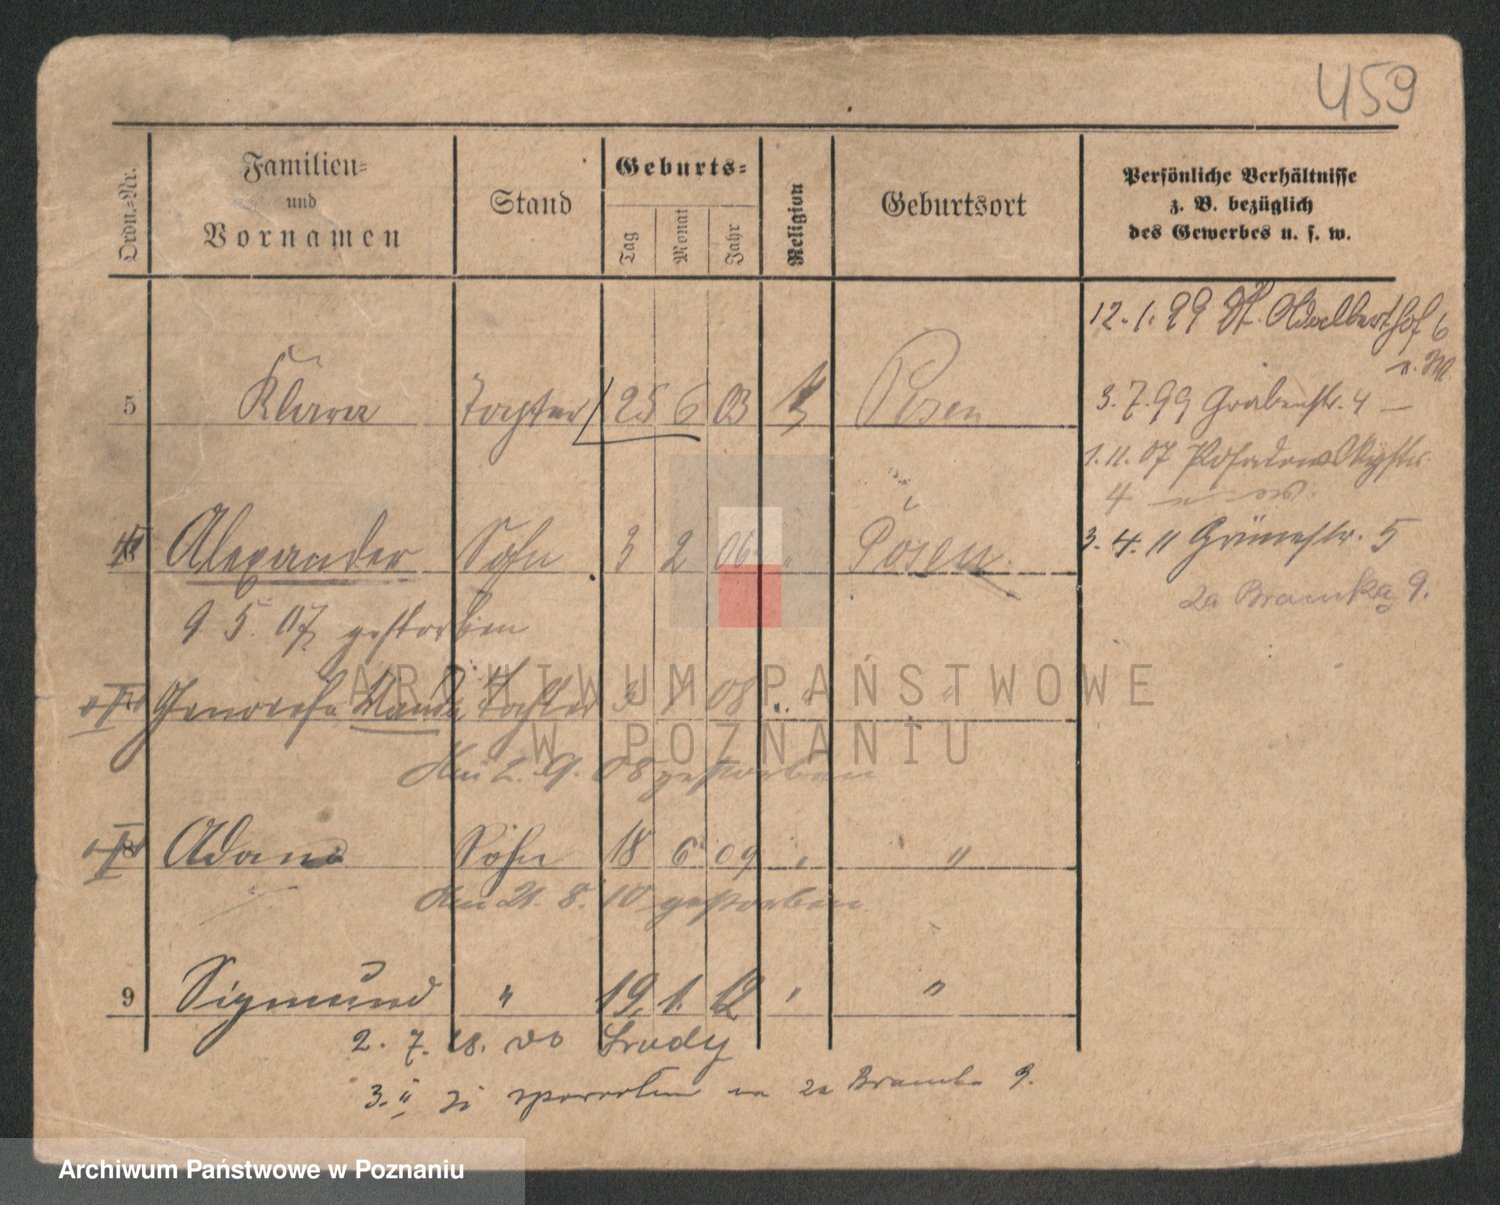 459
Ordn.=Nr.
Familien=
und
Vornamen
Stand
Geburts=
Tag
Monat
Jahr
Religion
Geburtsort
Persönliche Verhältnisse
z. B. bezüglich
des Gewerbes u. s. w.
12.1.99 St. Adalberthof 6
3.7.99 Grabenstr. 4 —
1.11.07
4
3.4.11 Grünestr. 5
za Bramką 9.
5 Klara Tochter 25 6 03 Posen
Alexander Sohn 3 2 06 " Posen
9 5. 07 gestorben
Genovefa Wanda Tochter 3 1 08 " "
Am 2. 9. 08 gestorben
8 Adam Sohn 18 6 09 " "
Am 21. 8. 10 gestorben
9 Sigmund " 19. 1. 12 " "
2. 7. 18. do Środy
3. zś na za Bramka 9.
ARCHIWUM PAŃSTWOWE
W POZNANIU
Archiwum Państwowe w Poznaniu